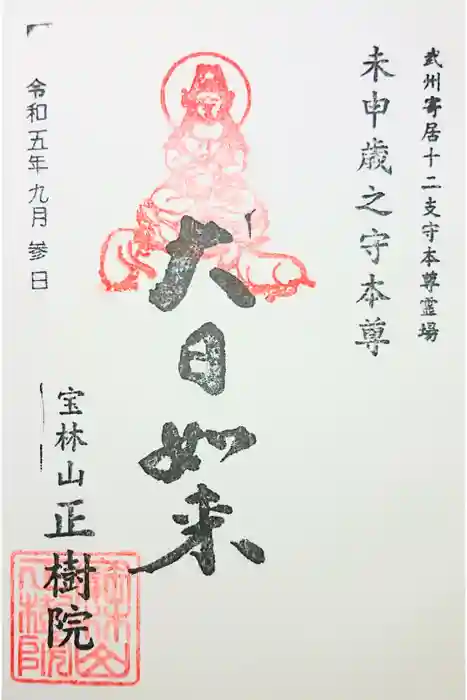 武州寄居十二支守本尊霊場
未申歳之守本尊
大日如来
宝林山正樹院
令和五年九月参日